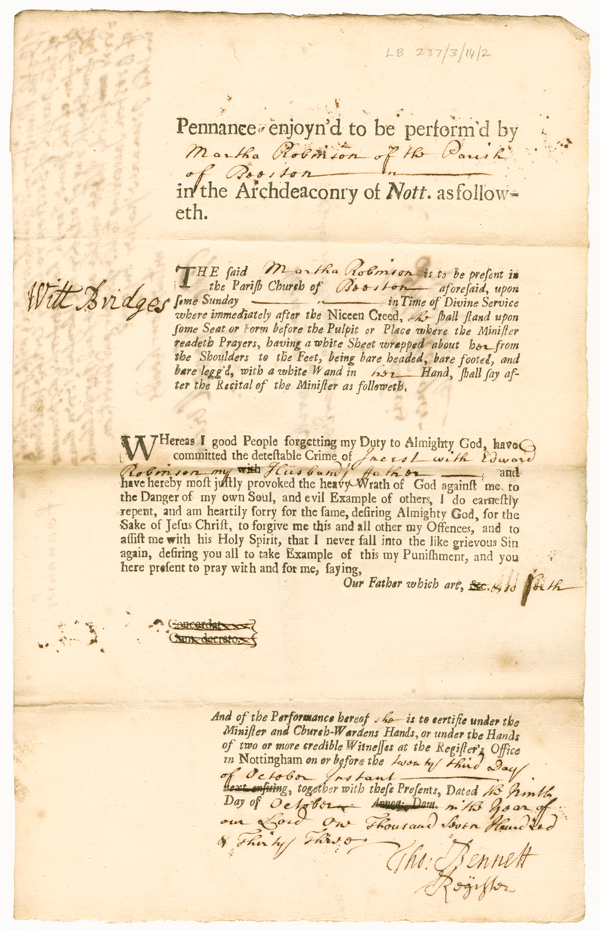 LB 237/3/14/2
Pennance enjoyn'd to be perform'd by
Martha Robinson of the Parish
of Beeston
in the Archdeaconry of Nott. as follow-
eth.
Will Bridges
THE said Martha Robinson is to be present in
the Parish Church of Beeston aforesaid, upon
some Sunday in Time of Divine Service
where immediately after the Niceen Creed, she shall stand upon
some Seat or Form before the Pulpit or Place where the Minister
readeth Prayers, having a white Sheet wrapped about her from
the Shoulders to the Feet, being bare headed, bare footed, and
bare legg'd, with a white Wand in her Hand, shall say af-
ter the Recital of the Minister as followeth.
WHereas I good People forgetting my Duty to Almighty God, have
committed the detestable Crime of Incest with Edward
Robinson my with Husband's father and
have hereby most justly provoked the heavy Wrath of God against me to
the Danger of my own Soul, and evil Example of others, I do earnestly
repent, and am heartily sorry for the same, desiring Almighty God, for the
Sake of Jesus Christ, to forgive me this and all other my Offences, and to
assist me with his Holy Spirit, that I never fall into the like grievous Sin
again, desiring you all to take Example of this my Punishment, and you
here present to pray with and for me, saying,
Our Father which are, &c. &so forth
Concordat
Cum decreto
And of the Performance hereof she is to certifie under the
Minister and Church-Wardens Hands, or under the Hands
of two or more credible Witnesses at the Register's Office
in Nottingham on or before the twenty third Day
of October Instant
next ensuing, together with these Presents, Dated the Ninth
Day of October Annoq; Dom. in the Year of
our Lord One Thousand Seven Hundred
& Thirty Three
Tho: Bennett
Register